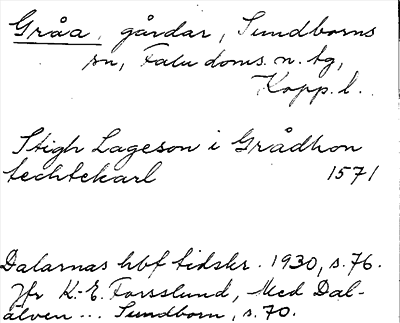 Gråa, gårdar, Sundborns
sn, Falu doms. n. tg,
Kopp. l.
Stigh Lageson i Grådhon
techtekarl 1571
Dalarnas hbf tidskr. 1930, s. 76.
Jfr K.-E. Forsslund, Med Dal-
älven ... Sundborn, s. 70.